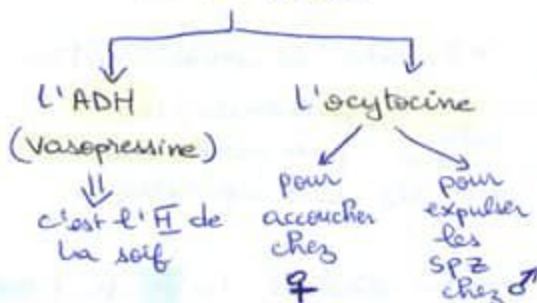 l'ADH
(vasopressine)
c'est l'H de
la soif
l'ocytocine
pour
accoucher
chez
♀
pour
expulser
les
SPZ
chez ♂